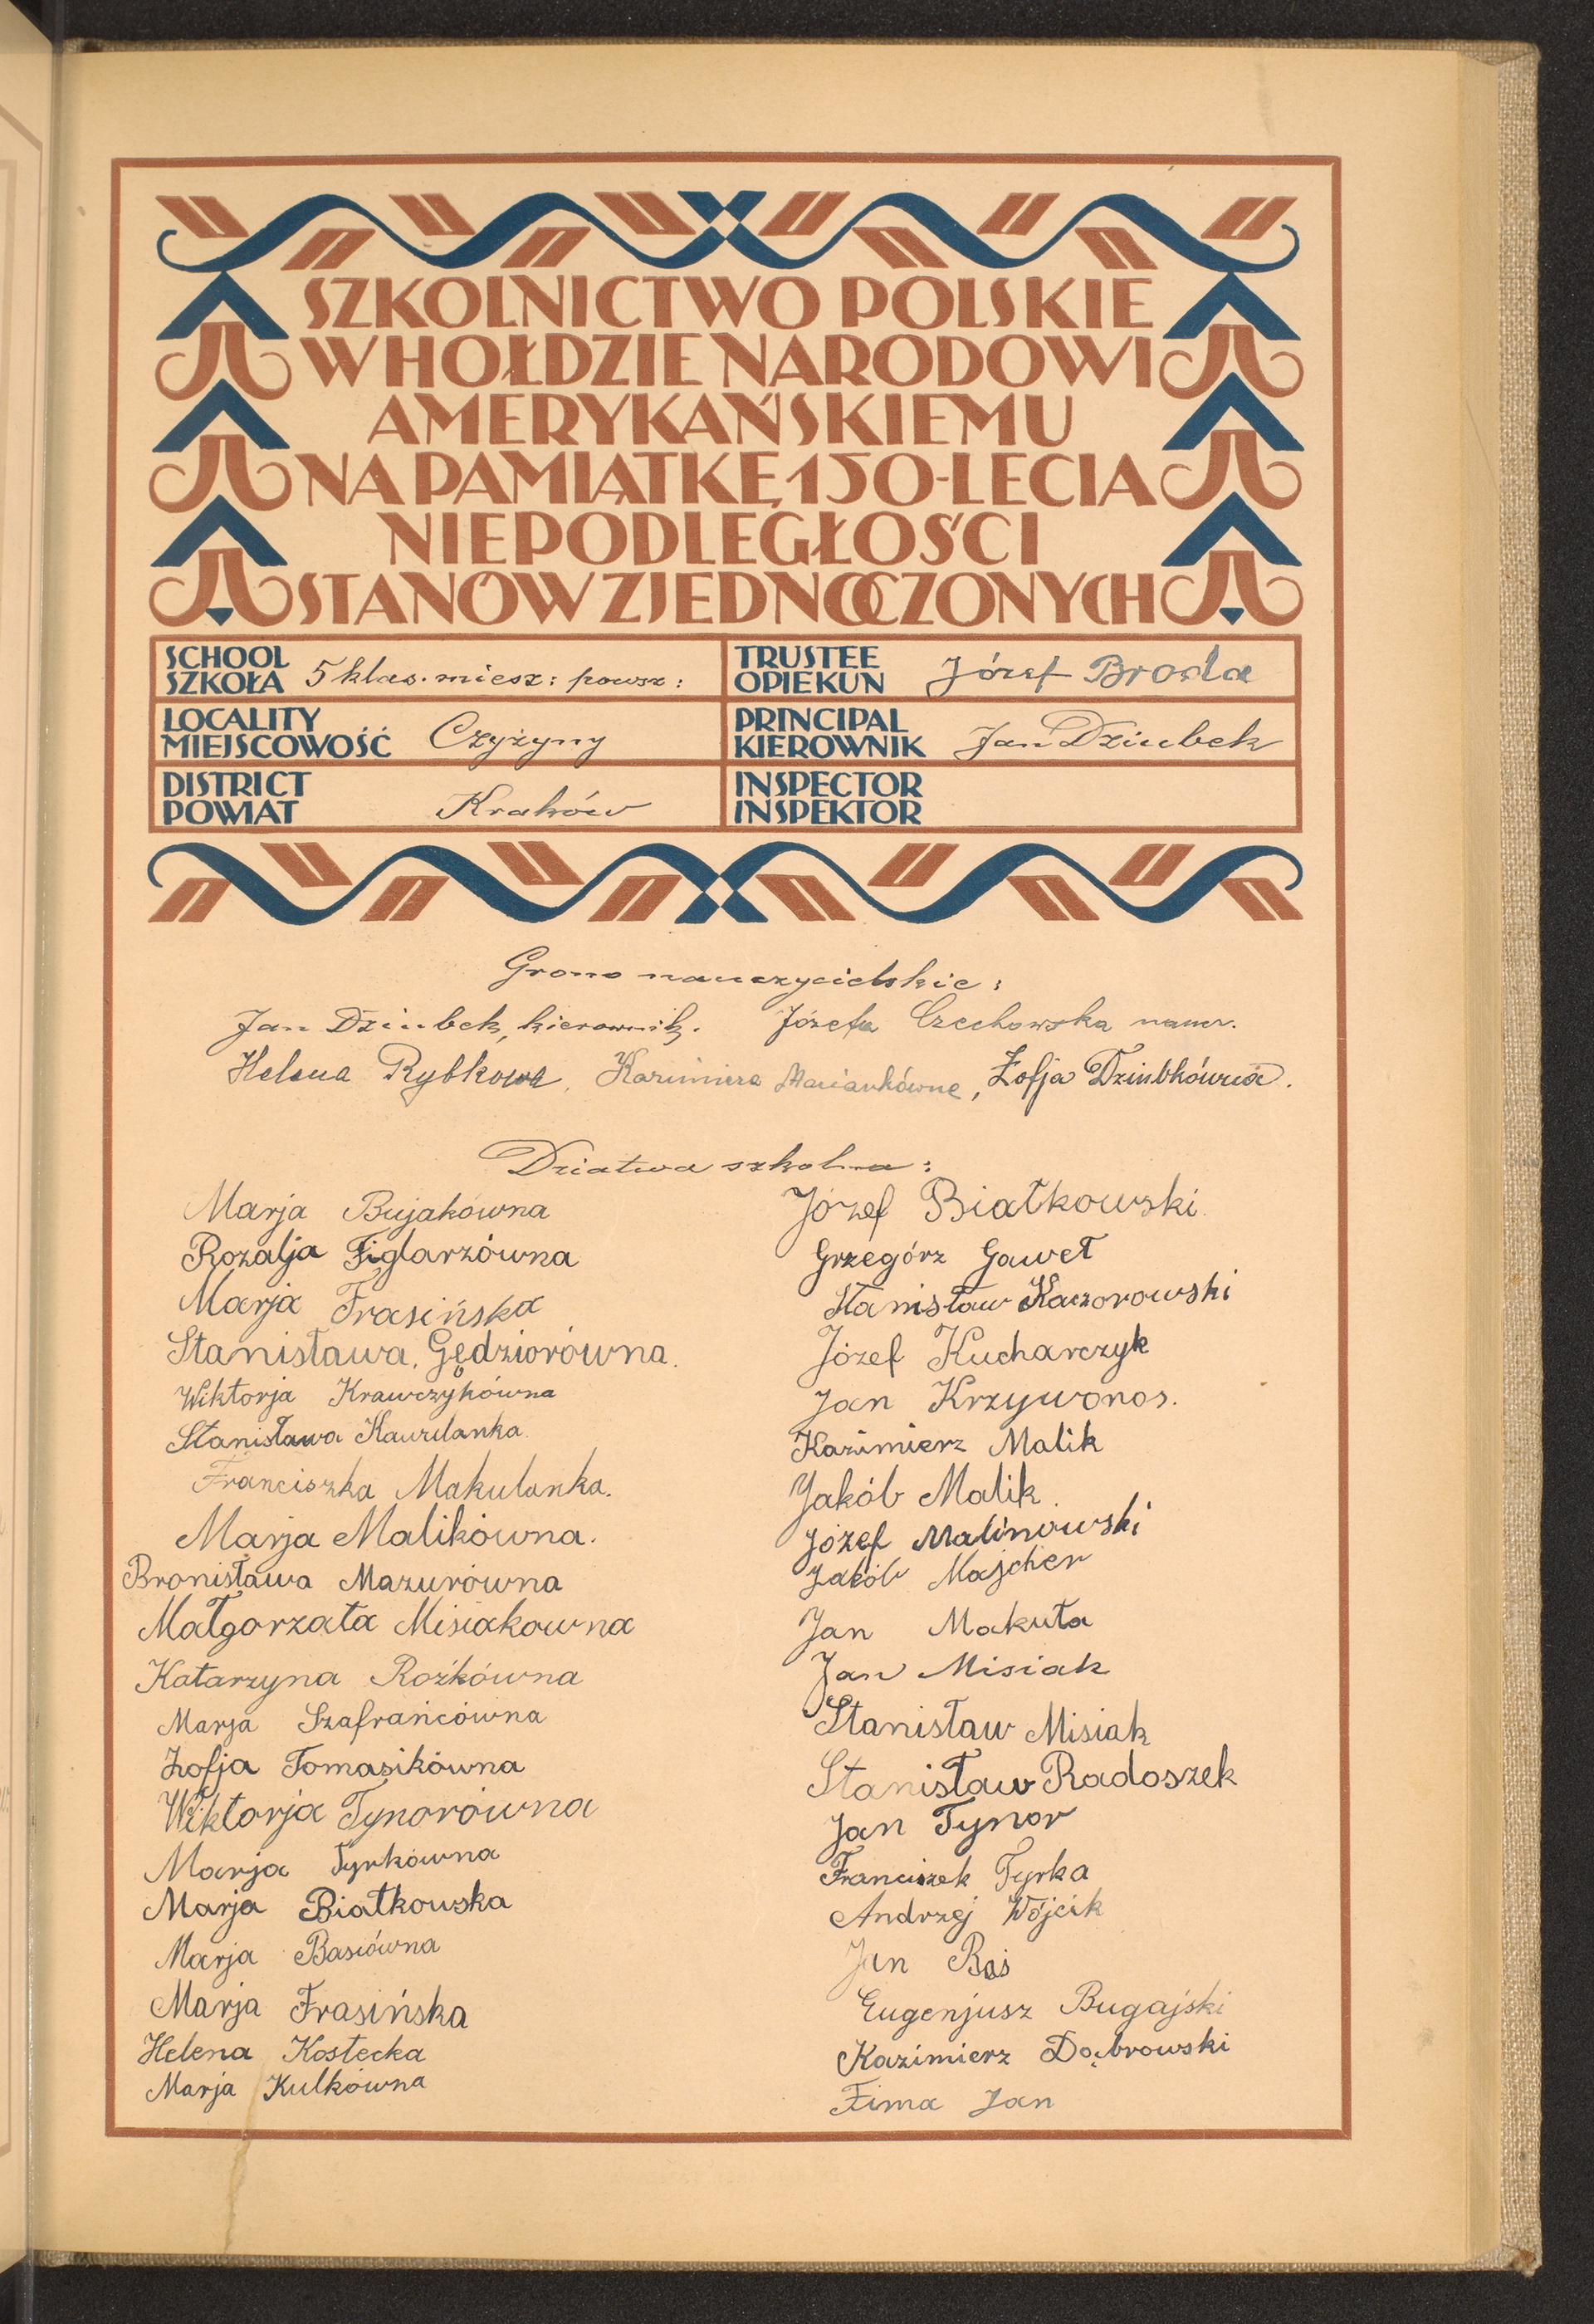 SZKOLNICTWO POLSKIE
W HOŁDZIE NARODOWI
AMERYKAŃSKIEMU
NA PAMIĄTKĘ 150-LECIA
NIEPODLEGŁOŚCI
STANÓW ZJEDNOCZONYCH
SCHOOL
SZKOŁA 5 klas. miesz: powsz:
TRUSTEE
OPIEKUN Józef Broda
LOCALITY
MIEJSCOWOŚĆ Czyżyny
PRINCIPAL
KIEROWNIK Jan Dziubek
DISTRICT
POWIAT Kraków
INSPECTOR
INSPEKTOR
Grono nauczycielskie:
Jan Dziubek, kierownik. Józefa Czechowska naucz.
Helena Rybkowa, Kazimiera Mariankówna, Zofja Dziubkówna.
Dziatwa szkolna:
Marja Bujakówna
Rozalja Figlarzówna
Marja Frasińska
Stanisława Gędziorówna.
Wiktorja Krawczykówna
Stanisława
Franciszka Makulanka.
Marja Malikówna.
Bronisława Mazurówna
Małgorzata Misiakowna
Katarzyna Rożkówna
Marja Szafrańcówna
Zofja Tomasikówna
Wiktorja Tynorówna
Marja Tyrkówna
Marja Białkowska
Marja Basiówna
Marja Frasińska
Helena Kostecka
Marja Kulkówna
Józef Białkowski.
Grzegórz Gaweł
Stanisław Kaczorowski
Józef Kucharczyk
Jan Krzywonos.
Kazimierz Malik
Jakób Malik.
Józef Malinowski
Jakób Majcher
Jan Makuła
Jan Misiak
Stanisław Misiak
Stanisław Radoszek
Jan Tynor
Franciszek Tyrka
Andrzej Wójcik
Jan Baś
Eugenjusz Bugajski
Kazimierz Dąbrowski
Fima Jan